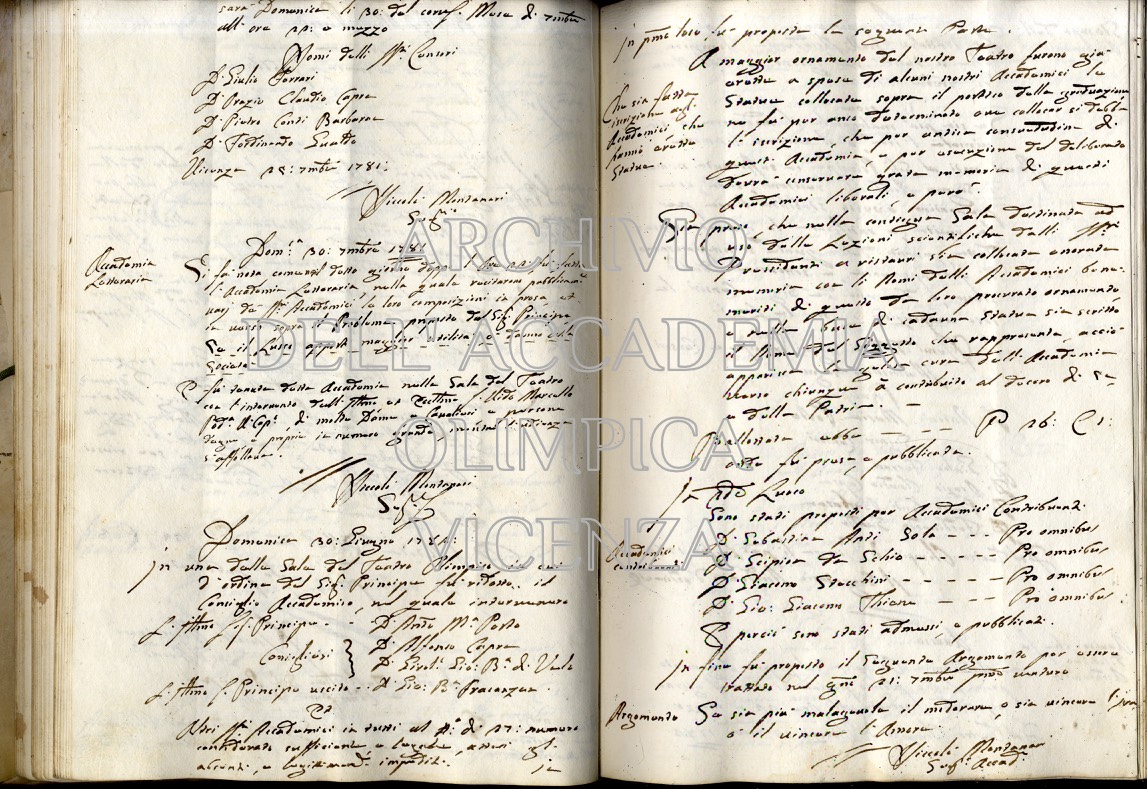 sarà Domenica li 30: del corr. Mese di 7mbre
all' ora 22: e mezzo
Nomi delli SSri Censori
Dr Giulio Ferrari
Dr Orazio Claudio Capra
Dr Pietro Conti Barbaran
Dr Ferdinando Gualdo
Vicenza 23: 7mbre 1781:
Niccolò Montanari
Segrio
Domca 30: 7mbre 1781
Accademia
Letteraria
Si fu nel giorno
l'Accademia Letteraria, nella quale recitarono
varj de SSri Accademici le loro composizioni in prosa, et
in versi sopra il Problema proposto dal Sigr Principe
Se il Lusso apporti maggior utilità, o danno alla
Società.
E fu tenuta detta Accademia nella Sala del Teatro
con l'intervento dell' Illmo et Eccmo Sr Vido Marcello
Podà Vo Capo, di molte Dame, e Cavalieri, e persone
in numero grande,
s'affollava.
Niccolò Montanari
Segrio
Domenica 30: Giugno 178
In una delle Sale del Teatro Olimpico in cui
d'ordine del Sigr Principe fu ridotto il
Consiglio Accademico, nel quale intervennero
L'Illmo Sigr Principe - - Dr Antо Ma Porto
Consiglieri
Dr Alfonso Capra
Dr Girolo Gio: Ba di Velo
L'Illmo Sr Principe uscito - Dr Gio: Ba Fracanzan
Et
Altri SSri Accademici in tutti al No di 27: numero
considerato sufficiente, e legale, attesi gl'
absenti, e legittimamte impediti.
in
In pmo loco fu proposta la seguente Parte.
A maggior ornamento del nostro Teatro furono già
erette a spese di alcuni nostri Accademici le
Statue collocate sopra il portico della graduazione
ne fu per anco determinato ove collocar si debba
l'iscrizione, che per antica consuetudine di
quest' Accademia, e per esecuzione del deliberato
dovrà conservare grata memoria di questi
Accademici liberali, e però.
Che sia fatta
iscrizione agl'
Accademici che
hanno eretto
Statue.
Sia preso, che nella contigua Sala destinata ad
uso delle Lezioni scientifiche dalli SSri
Presidenti ai ristauri sia collocata onorata
memoria con li Nomi delli Accademici bene-
meriti di questo da loro procurato ornamento
e nella base di cadauna Statua sia scritto
il Nome del Soggetto che rappresenta, acciò
apparisca la giusta cura dell' Accademia
verso chiunque à contribuito al decoro di Se,
e della Patria. -
Ballottata ebbe - - - P 26: C 1:
onde fu presa, e pubblicata.
In 2do Luoco
Sono stati proposti per Accademici Contribuenti
Accademici
contribuenti
Dr Sebastian Anti Sola - - - Pro omnibus
Dr Scipion da Schio - - - - - Pro omnibus
Dr Giacomo Stecchini - - - - - Pro omnibus
Dr Gio: Giacomo Thiene - - - Pro omnibus.
E perciò sono stati admessi, e pubblicati.
In fine fu proposto il Seguente Argomento per essere
trattato nel gno 21: 7mbre pmo venturo
Argomento
Se sia più malagevole il moderare, o sia vincere l'ira
o il vincere l'Amore
Niccolò Montanari
Segr. Accad.
ARCHIVIO
DELL'ACCADEMIA
OLIMPICA
VICENZA